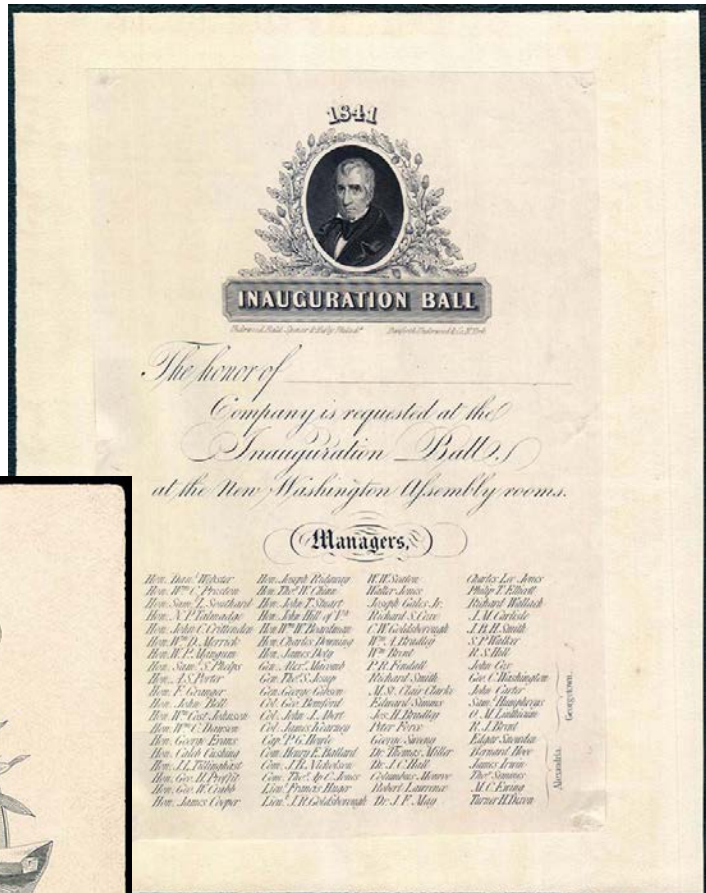 1841
INAUGURATION BALL
Underwood, Bald, Spencer & Hufty, Philadᵃ Danforth, Underwood & Co. N. York
The honor of
Company is requested at the
Inauguration Ball,
at the New Washington Assembly rooms.
Managers,
Hon. Danˡ Webster
Hon. Wᵐ C. Preston
Hon. Samˡ L. Southard
Hon. N. P. Talmadge
Hon. John C. Crittenden
Hon. Wᵐ D. Merrick
Hon. W. P. Mangum
Hon. Samˡ S. Phelps
Hon. A. S. Porter
Hon. F. Granger
Hon. John Bell
Hon. Wᵐ Cost Johnson
Hon. Wᵐ C. Dawson
Hon. George Evans
Hon. Caleb Cushing
Hon. J. L. Tillinghast
Hon. Geo. H. Proffit
Hon. Geo. W. Crabb
Hon. James Cooper
Hon. Joseph Ridgway
Hon. Thoˢ W. Chinn
Hon. John T. Stuart
Hon. John Hill of Vᵃ
Hon. Wᵐ W. Boardman
Hon. Charles Downing
Hon. James Doty
Gen. Alexʳ Macomb
Gen. Thoˢ S. Jesup
Gen. George Gibson
Col. Geo. Bomford
Col. John J. Abert
Col. James Kearney
Cap. P. G. Howle
Com. Henry E. Ballard
Com. J. B. Nicholson
Com. Thoˢ Ap C. Jones
Lieuᵗ Francis Huger
Lieuᵗ J. R. Goldsborough
W. W. Seaton
Walter Jones
Joseph Gales Jr.
Richard S. Coxe
C. W. Goldsborough
Wᵐ A. Bradley
Wᵐ Brent
P. R. Fendall
Richard Smith
M. St. Clair Clarke
Edward Simms
Jos. H. Bradley
Peter Force
George Sweeny
Dr. Thomas Miller
Dr. J. C. Hall
Columbus Monroe
Robert Lawrence
Dr. J. F. May
Charles Lee Jones
Philip T. Ellicott
Richard Wallach
J. M. Carlisle
J. B. H. Smith
S. P. Walker
R. S. Hill
John Cox
Geo. C. Washington
John Carter
Samˡ Humphreys
O. M. Linthicum
R. J. Brent
Edgar Snowden
Bernard Hooe
James Irwin
Thoˢ Semmes
M. C. Ewing
Turner H. Dixon
Georgetown.
Alexandria.